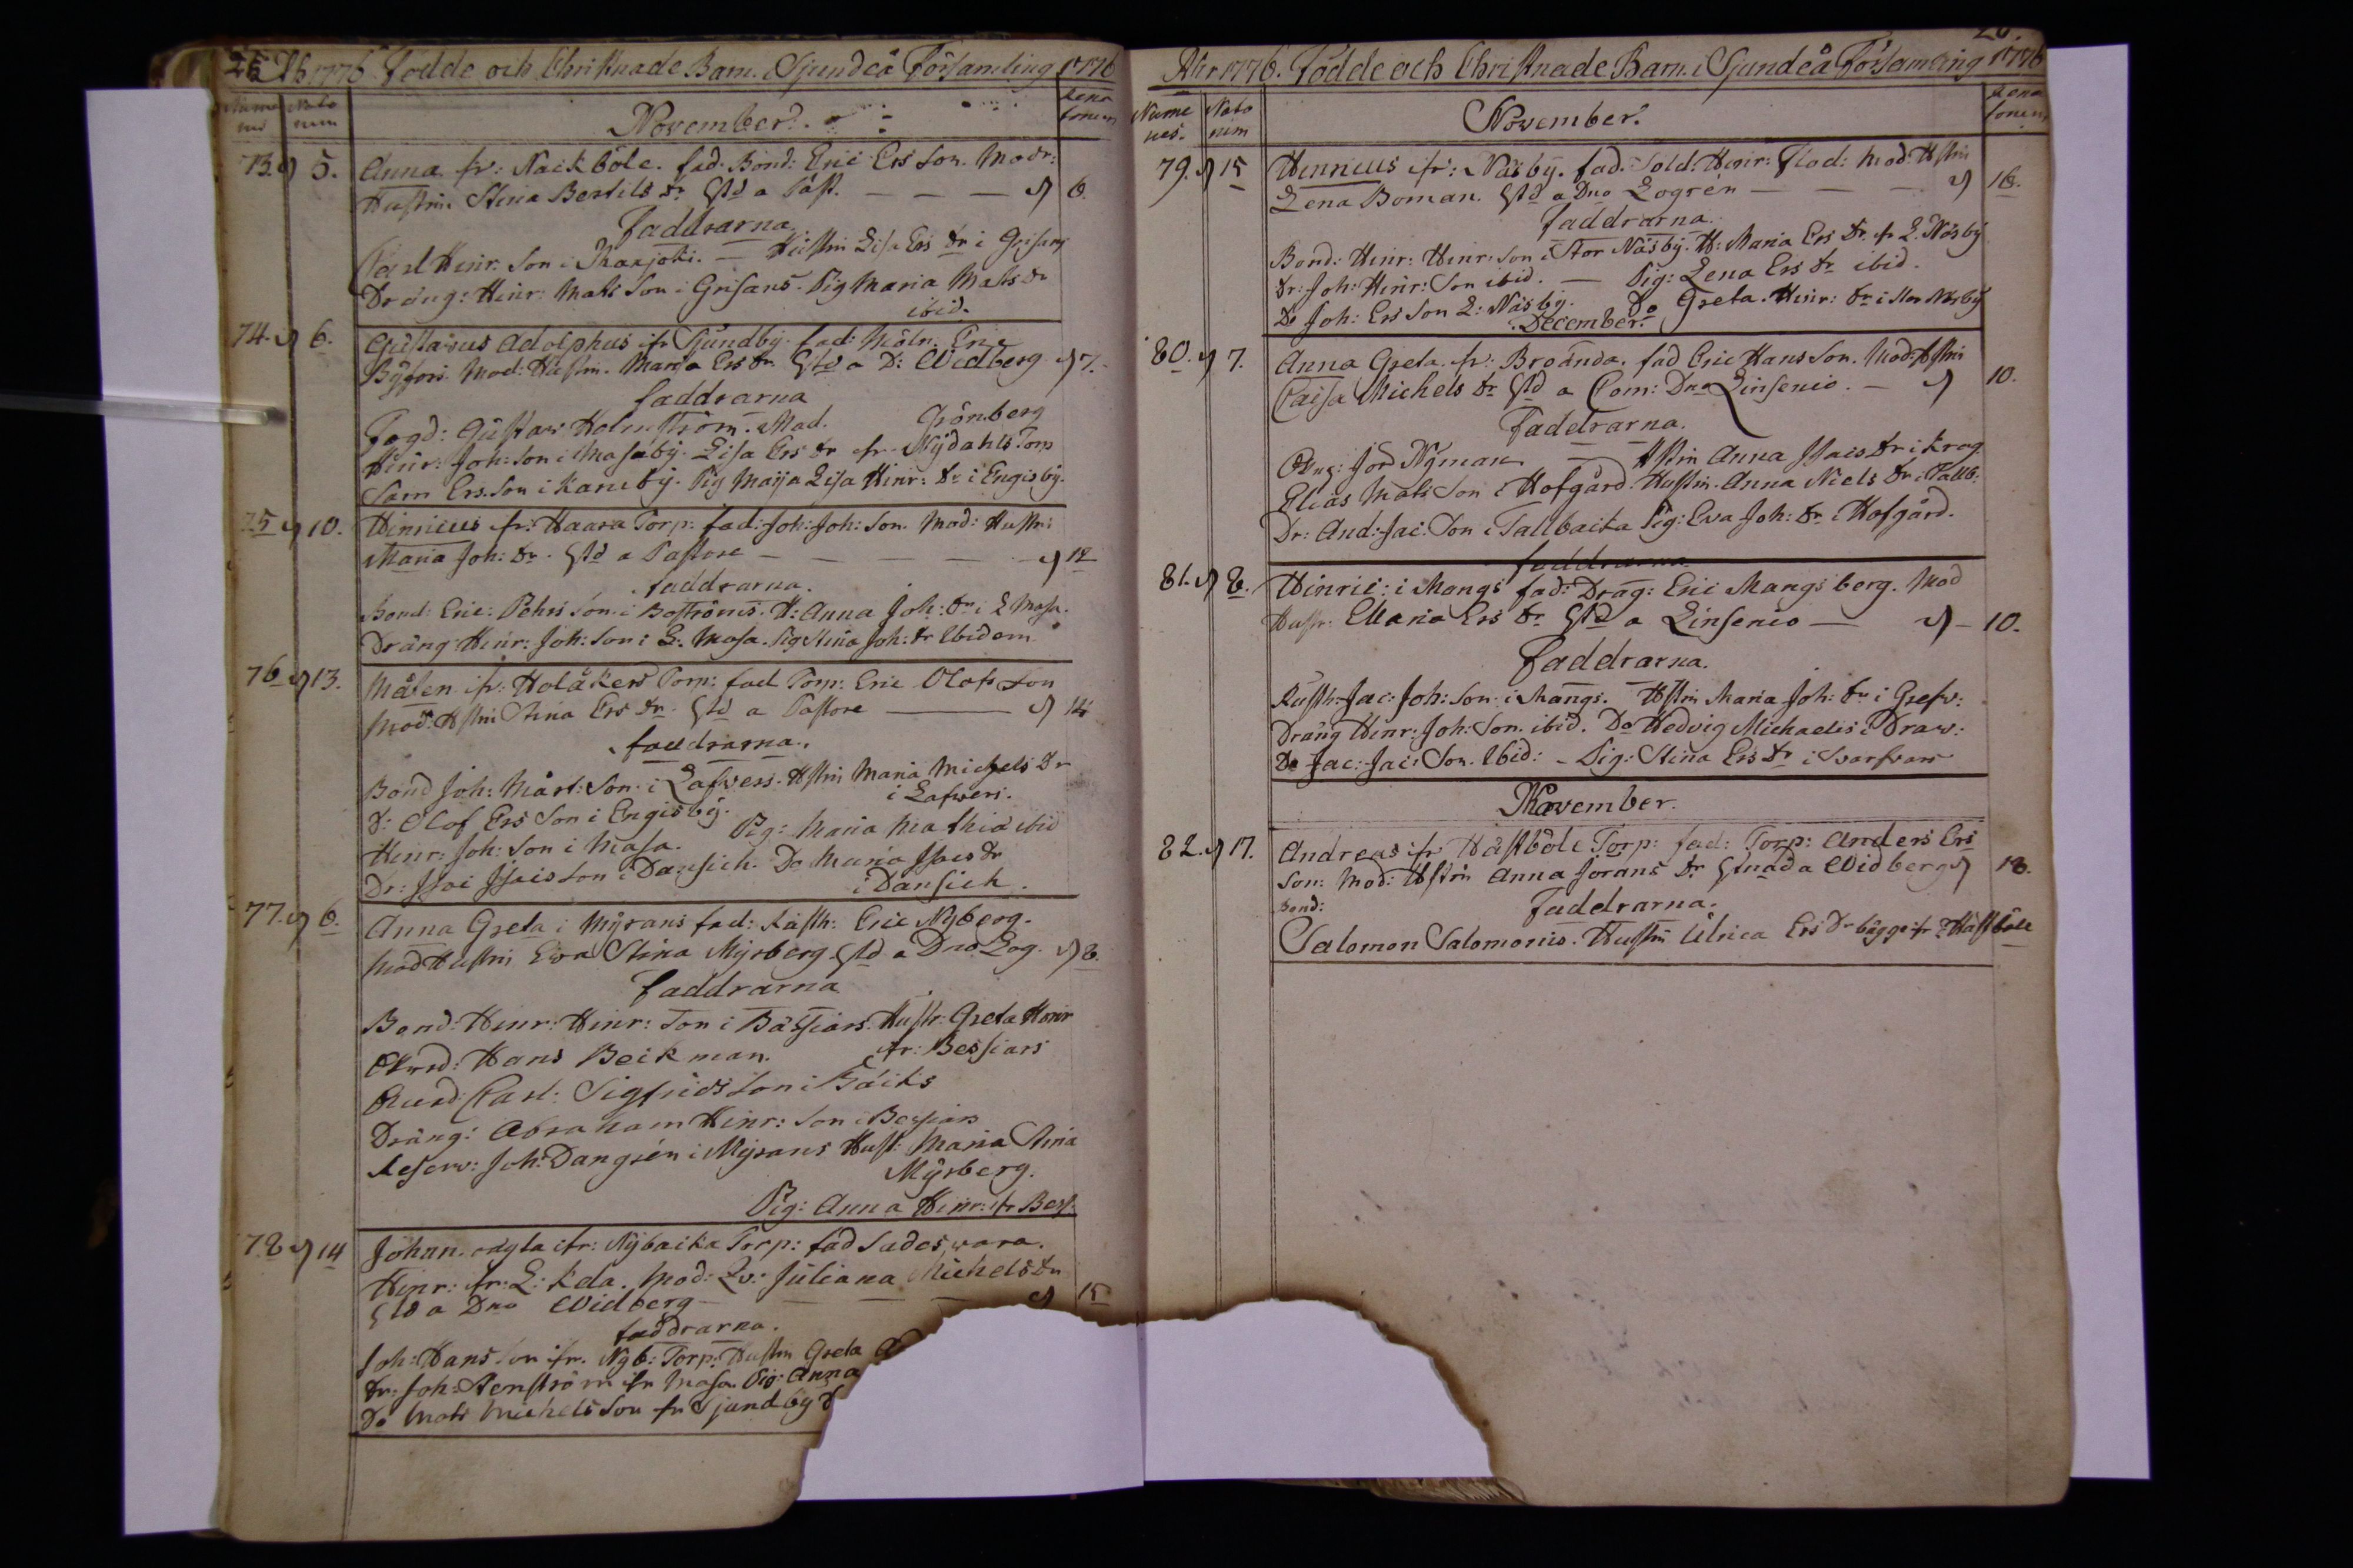 25 Åhr 1776 Födde och Christnade Barn i Sjundeå Församling 1776
Nume rus Nato rum November. Rena torum
73. d 5. Anna fr: Nackböle. fad. Bond: Eric Ers Son. Modr:
Hustru Stina Bertils dr Gtd a Past. — — — d 6.
Faddrarna.
Carl Hinr. Son i Karjoki. — Hustru Lisa Ers dr i Grisans
Dräng: Hinr: Mats Son i Grisans. Pig Maria Mats dr
ibid.
74. d 6. Gustavus Adolphus fr Sjundby. fad: Möln. Eric
Byfors. Mod: Hustru. Marja Ers dr Gtd a D: Widberg d 7.
faddrarna
Fogd: Gustav Holmström. Mad. Grönberg
Hinr: Joh: Son i Masaby. Lisa Ers dr fr. Nydahls Torp
Sam Ers. Son i Karuby. Pig Maja Lisa Hinr: dr i Engisby.
75 d 10. Hinricus fr: Haara Torp: fad: Joh: Joh: Son. Mod: Hustru
Maria Joh: dr. Gtd a Pastore — — — — d 12
faddrarna.
Bond: Eric: Pehrs Son i Boströms. H: Anna Joh: dr i L Masa.
Dräng Hinr: Joh: Son i L. Masa. Pig Stina Joh: dr Ibidem
76 d 13. Måten fr: Holåkers Torp: fad Torp: Eric Olofs Son
Mod: Hstru Stina Ers dr. Gtd a Pastore — d 14
faddrarna.
Bond Joh: Mårt: Son i Lafvers. Hstru Maria Michels Dr
i Lafvers.
D: Olof Ers Son i Engisby. Pig: Maria Mathiæ ibid
Hinr: Joh: Son i Masa.
Dr: Isac Isacs Son i Dansick. Do Maria Isacs dr
i Dansick.
77. d 6. Anna Greta i Myrans fad: Rusth: Eric Nyberg.
Mod Hustru Eva Stina Myrberg Gtd a Dno Log. d 8.
Faddrarna
Bond: Hinr: Hinr: Son i Bässiars. Hustr: Greta Hinr
Hans Beckman. fr: Bessiars
Carl: Sigfrids Son i Bäcks
Dräng: Abraham Hinr: Son i Bessiars
Reserv: Joh: Dangrén i Myrans Hust: Maria Stina
Myrberg.
Pig: Anna Hinr: fr Bess.
78 d 14 Johan. oägta fr: Nybacka Torp: fad Sades vara.
Hinr: fr: L: Kda. Mod: Qv: Juliana Michels dr
Gtd a Dno Widberg — — — d 15
faddrarna.
Joh: Hans Son fr. Nyb: Torp: Hustru Greta
Dr: Joh: Renström fr Masa. Pig: Anna
Do Mats Michels Son fr Sjundby
26.
Åhr 1776. Födde och Christnade Barn i Sjundeå Församling 1776
Nume rus. Nato rum November. Rena torum
79. d 15 Henricus fr: Näsby. fad. Sold: Hinr: Flod: Mod: Hstru
Lena Boman. Gtd a Dno Logrén — — — d 16.
Faddrarna.
Bond: Hinr: Hinr: Son i Stor Näsby. H: Maria Ers Dr. fr L. Näsby
Dr: Joh: Hinr: Son ibid. — Pig: Lena Ers dr ibid.
Do Joh: Ers Son L: Näsby. Do Greta. Hinr: dr i Stor Näsby
December.
80. d 7. Anna Greta. fr: Broända. fad Eric Hans Son. Mod: Hstru
Caisa Michels dr Gtd a Com: Dno Linsenio. — d 10.
Faddrarna.
Jörd Nyman — Hstru Anna Isacs Dr i Krog
Elias Mats Son i Hofgård. Hustru. Anna Niels dr i Tallb:
Dr: And: Jac: Son i Tallbacka Pig: Eva Joh: dr i Hofgård.
faddrarna
81. d 8. Hinric: i Mangs fad: Drag: Eric Mangsberg. Mod
Hustr: Maria Ers dr Gtd a Linsenio — d — 10.
Faddrarna.
Rusth: Jac: Joh: Son i Mangs. Hstru Maria Joh: dr i Grefv:
Dräng Hinr: Joh: Son. ibid. Do Hedvig Michaelis i Drav:
Do Jac: Jac: Son. Ibid: — Pig: Stina Ers dr i Svarfvars
November.
82. d 17. Andreas fr Hästböle Torp: fad: Torp: Anders Ers
Son: Mod: Hstru Anna Jörans Dr Gtnad a Widberg d 18.
Bond: Faddrarna.
Salomon Salomonis. Hustru Ulrica Ers dr bägge fr Hästböle